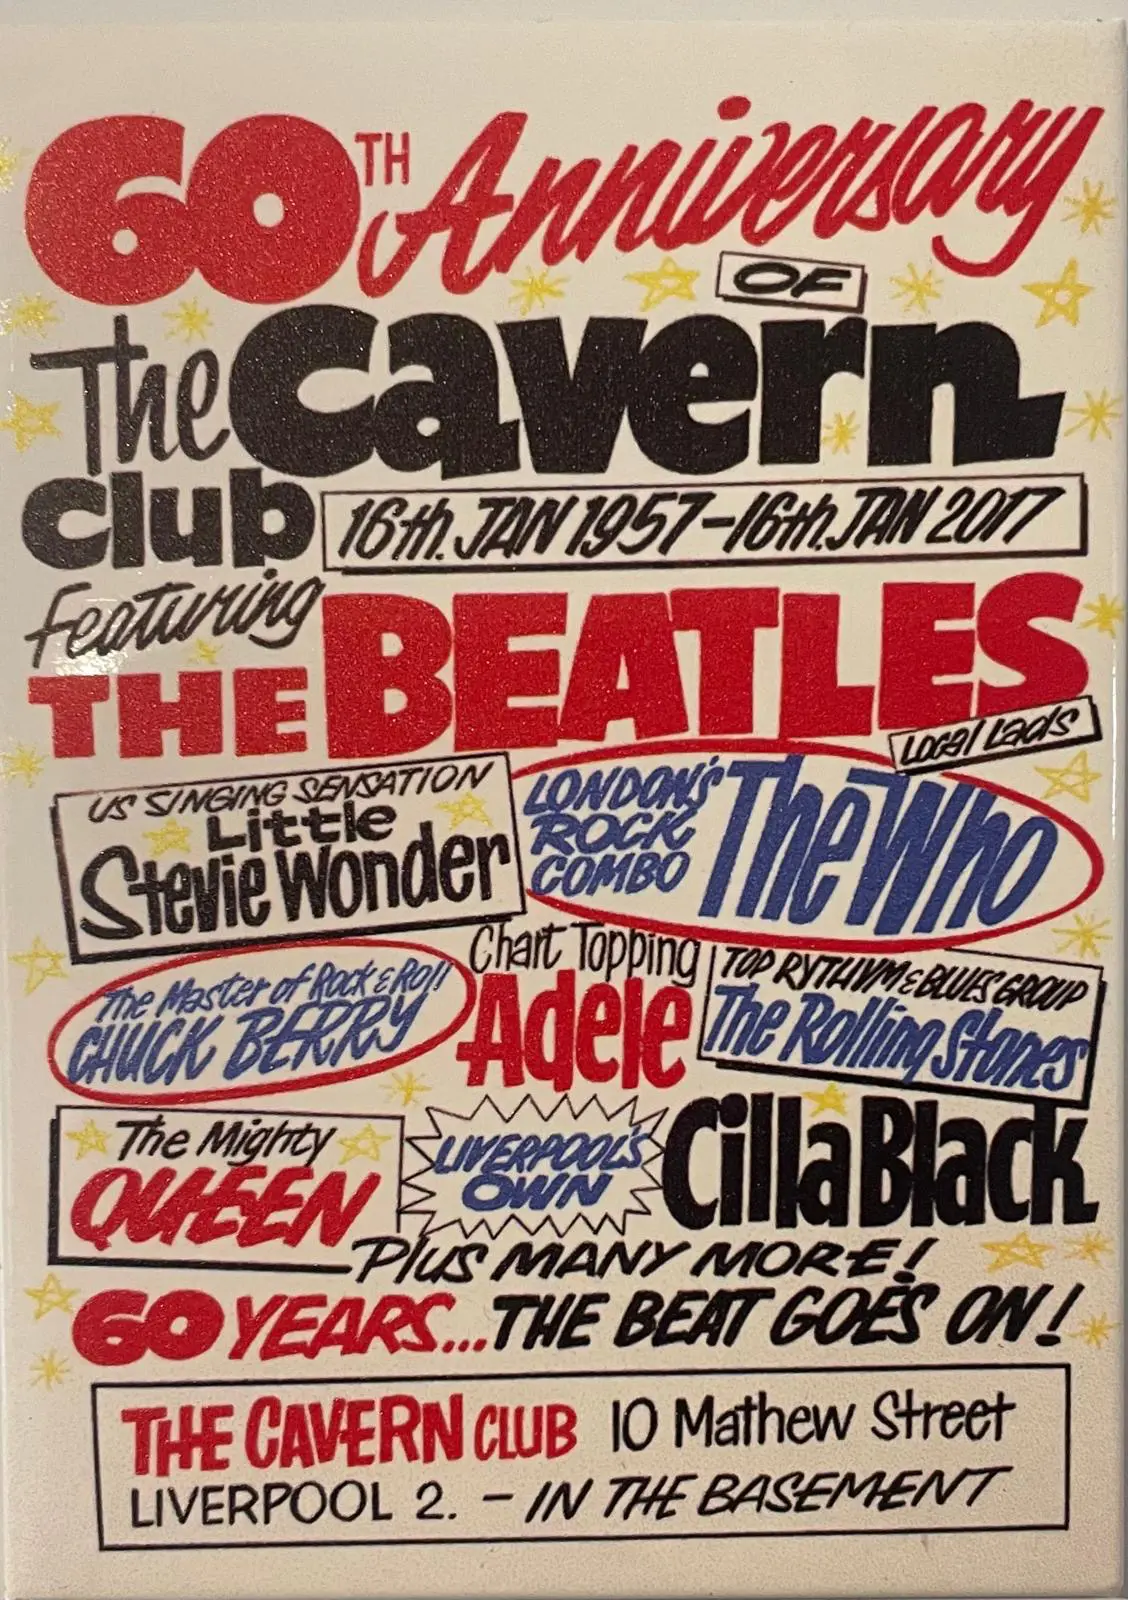 60TH Anniversary
OF
The Cavern
Club
16th. JAN 1957-16th. JAN 2017
Featuring
THE BEATLES
LOCAL LADS
US SINGING SENSATION
Little
Stevie Wonder
LONDON'S
ROCK
COMBO
The Who
The Master of Rock & Roll
CHUCK BERRY
Chart Topping
Adele
TOP RYTHYM & BLUES GROUP
The Rolling Stones
The Mighty
QUEEN
LIVERPOOL'S
OWN
Cilla Black
Plus MANY MORE!
60 YEARS... THE BEAT GOES ON!
THE CAVERN CLUB 10 Mathew Street
LIVERPOOL 2. - IN THE BASEMENT